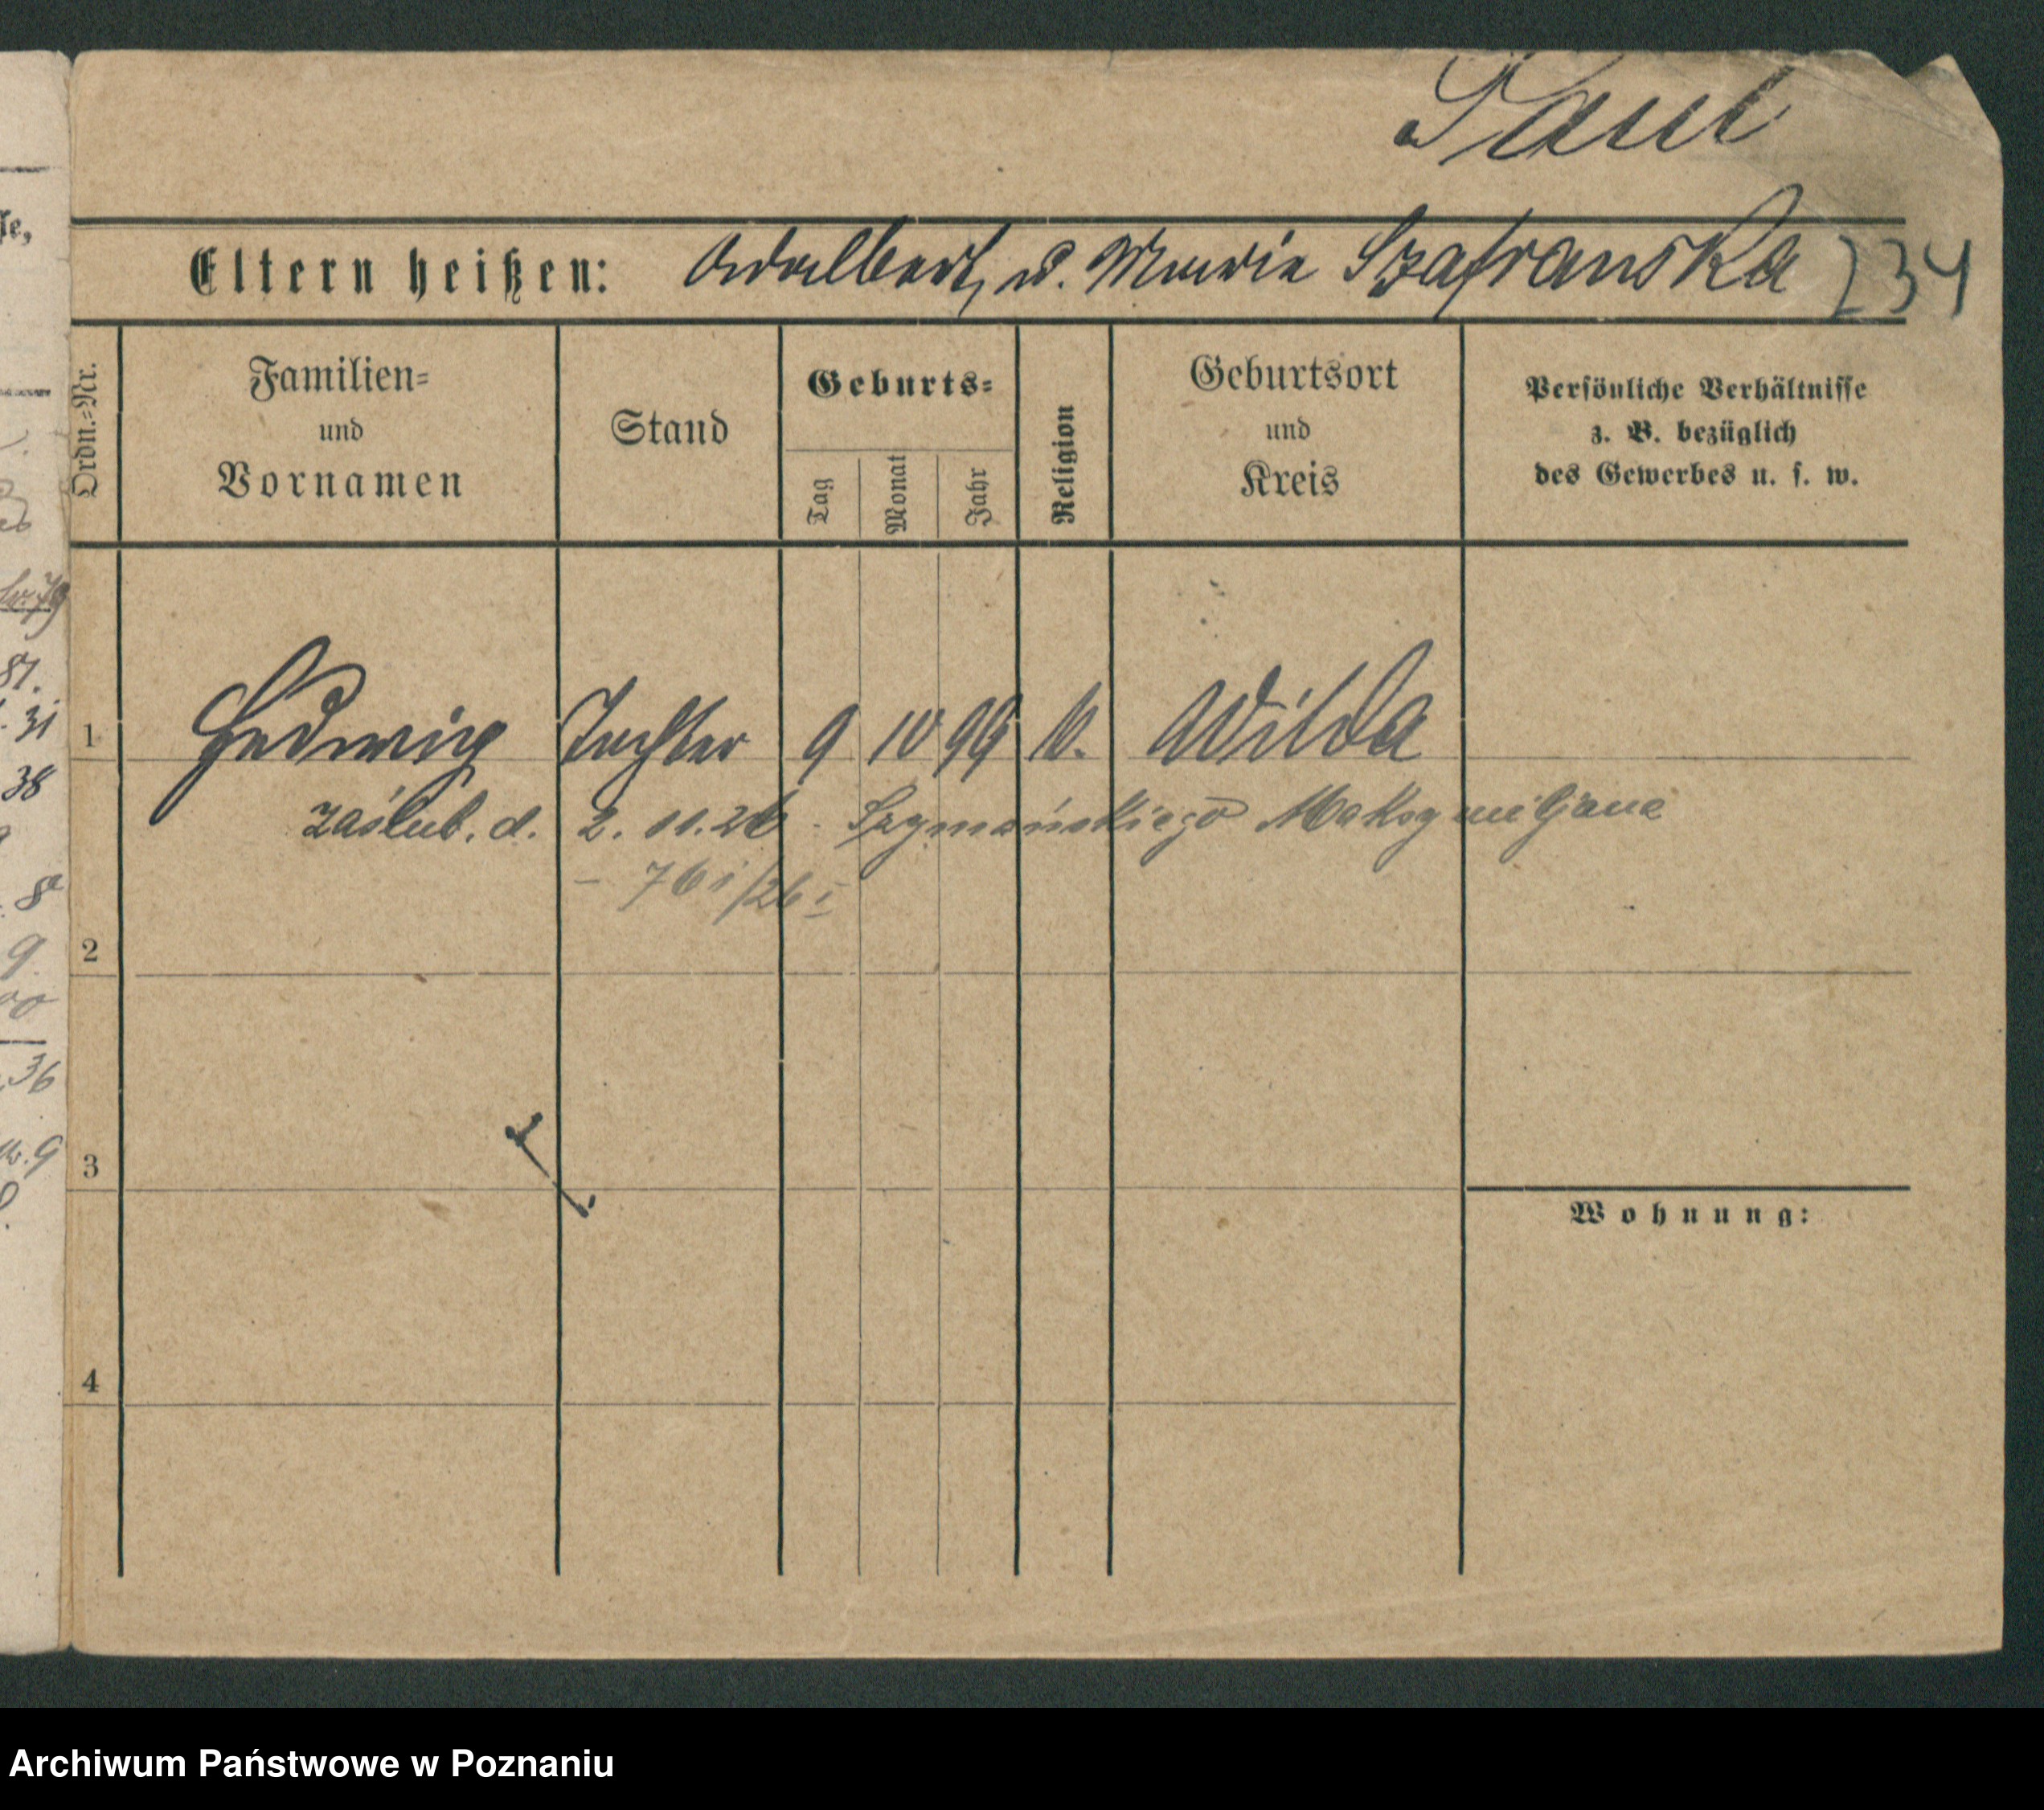 Paul
Eltern heißen: Adalbert, u. Marie Szafranska 234
Ordn.=Nr.
Familien=
und
Vornamen
Stand
Geburts=
Tag
Monat
Jahr
Religion
Geburtsort
und
Kreis
Persönliche Verhältnisse
z. B. bezüglich
des Gewerbes u. s. w.
1 Hedwig Tochter 9 10 99 k. Wilda
zaślub. d. 2. 11. 26 - Szymańskiego Maksymiljana
2
3
Wohnung:
4
Archiwum Państwowe w Poznaniu